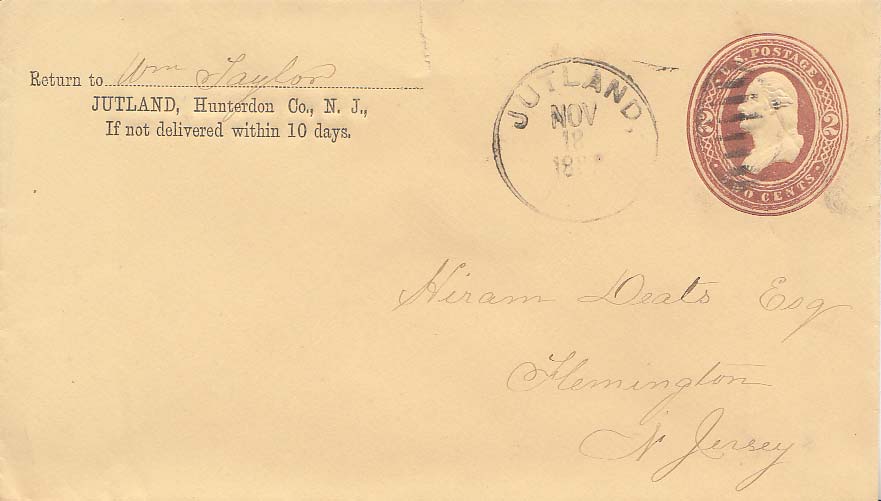 Return to Wm Taylor
JUTLAND, Hunterdon Co., N. J.,
If not delivered within 10 days.
JUTLAND.
NOV
18
U.S. POSTAGE
2 2
TWO CENTS
Hiram Deats Esq
Flemington
N Jersey